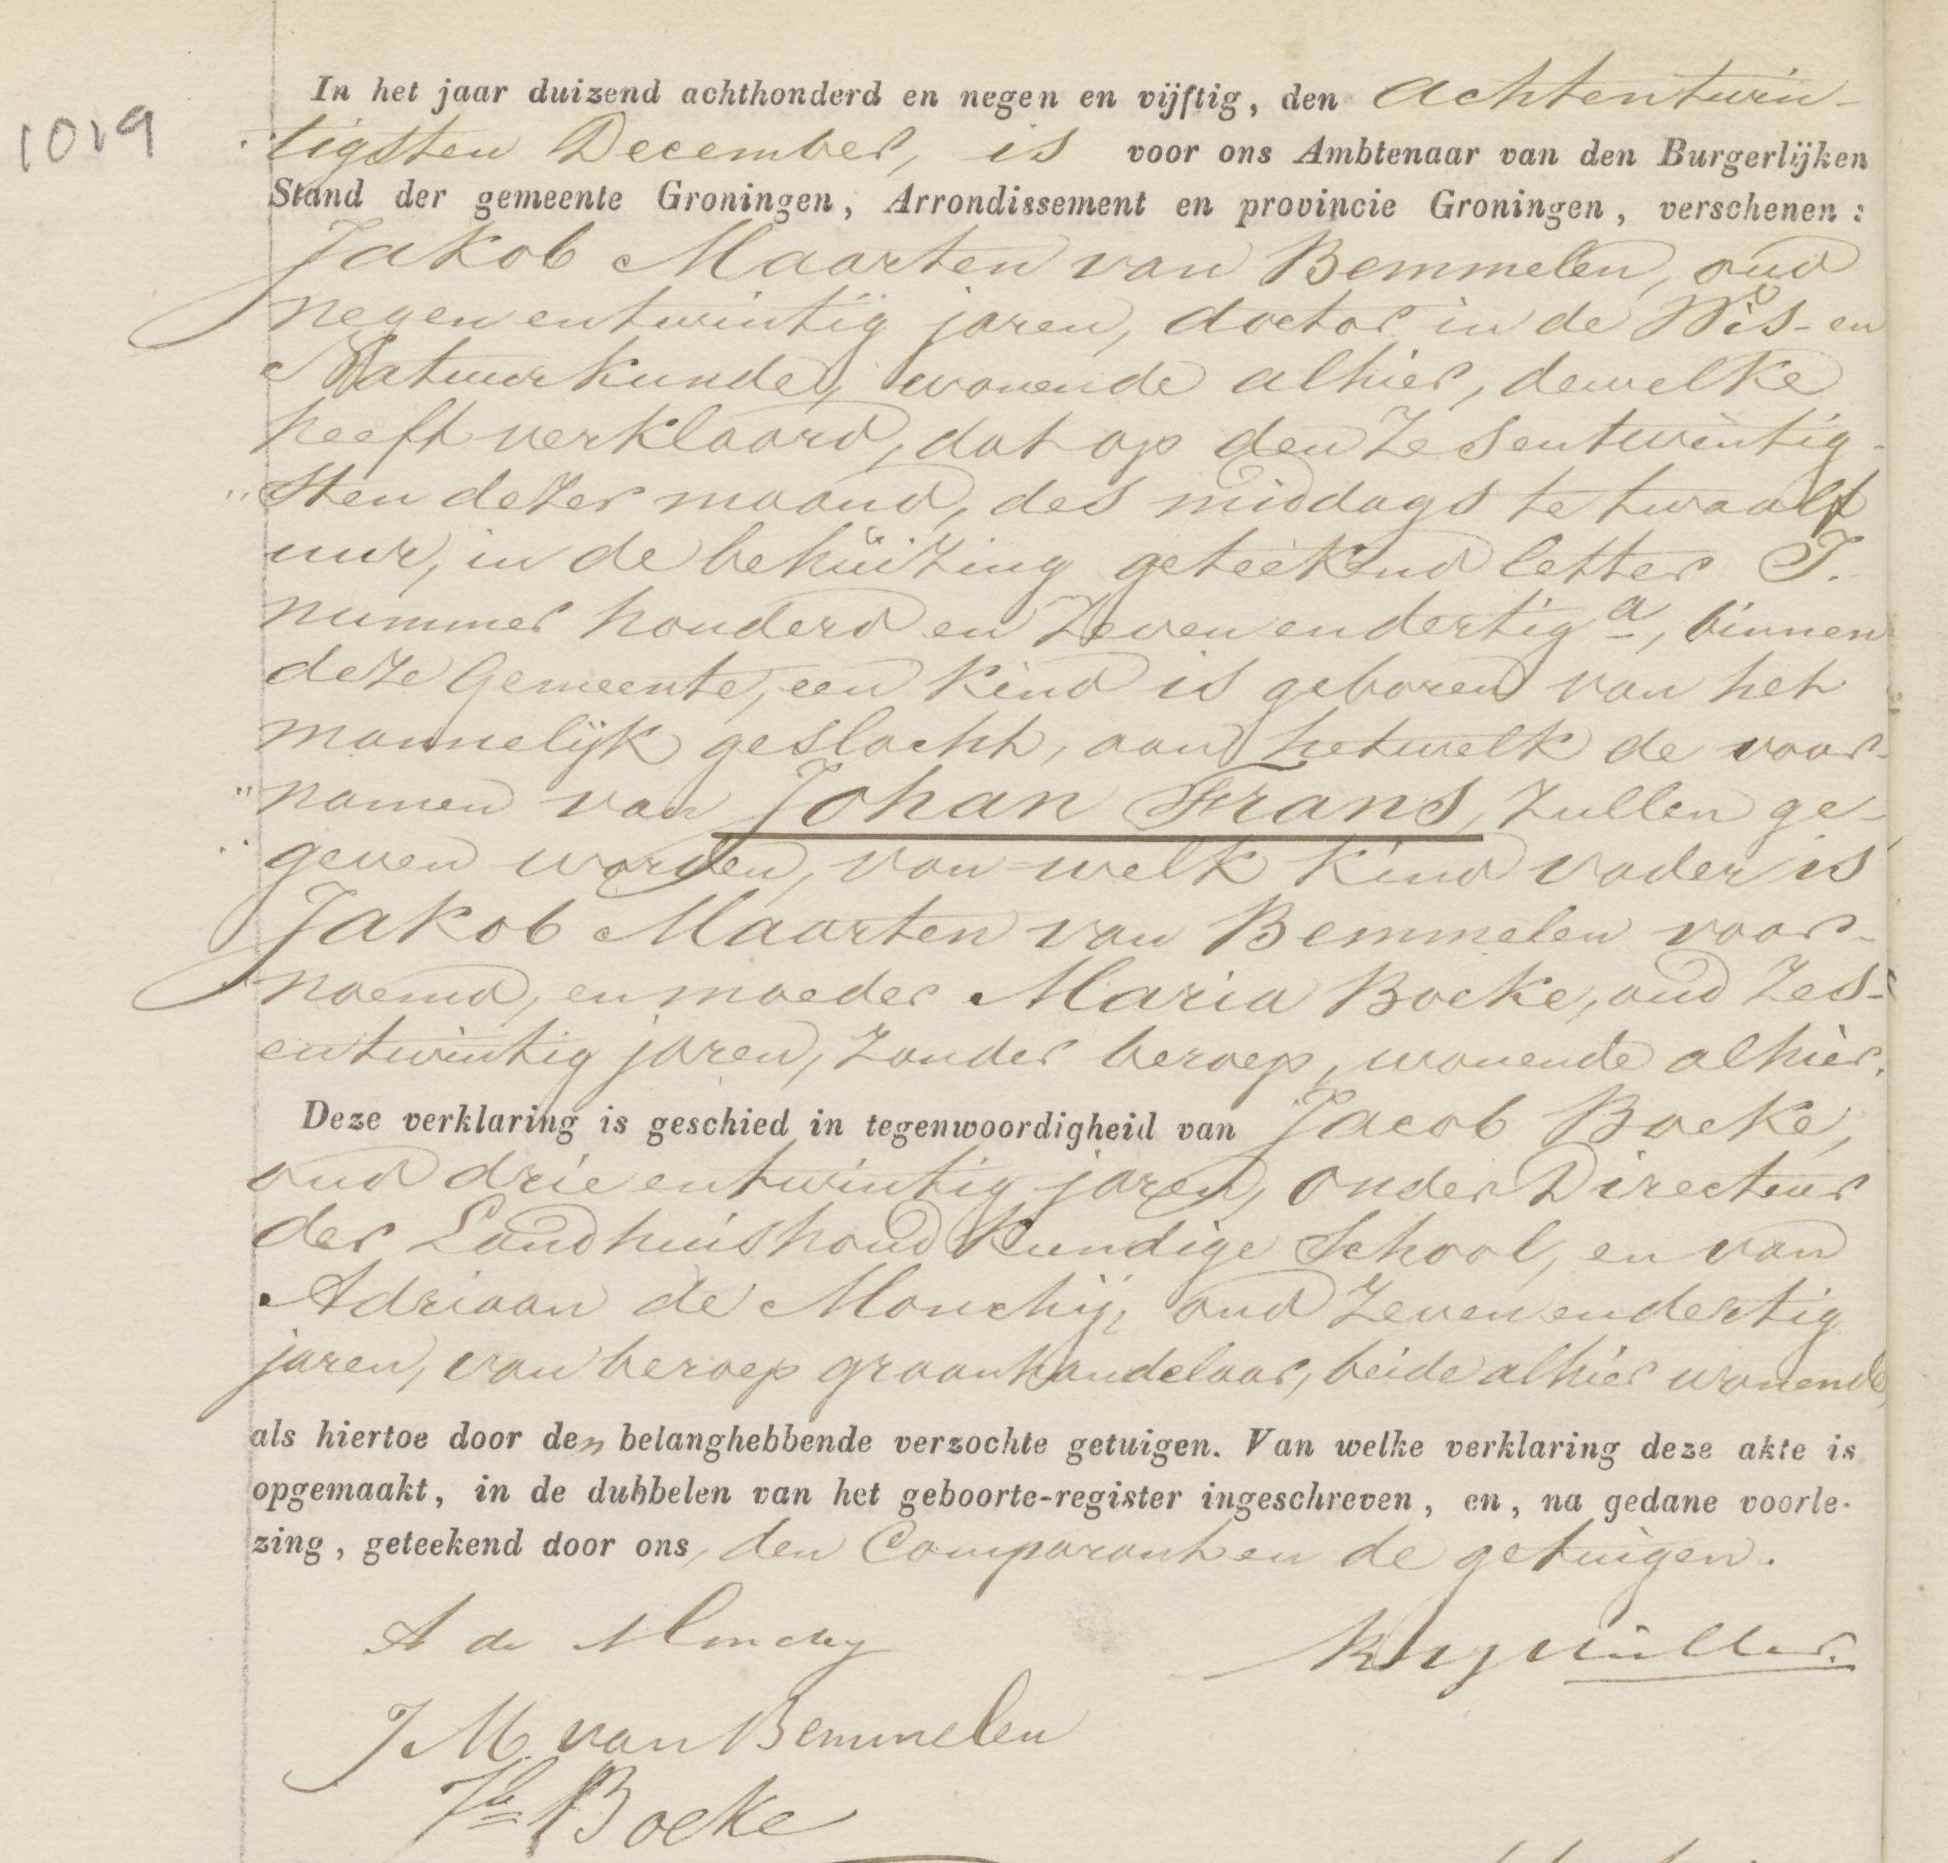 1019
In het jaar duizend achthonderd en negen en vijftig, den achtentwin-
tigsten December, is voor ons Ambtenaar van den Burgerlijken
Stand der gemeente Groningen, Arrondissement en provincie Groningen, verschenen:
Jakob Maarten van Bemmelen, oud
negenentwintig jaren, doctor in de Wis- en
Natuurkunde, wonende alhier, dewelke
heeft verklaard, dat op den zesentwintig-
sten dezer maand, des middags te twaalf
uur, in de behuizing geteekend letter J.
nummer honderd en zevenendertig a, binnen
deze Gemeente, een kind is geboren van het
mannelijk geslacht, aan hetwelk de voor-
namen van Johan Frans, zullen ge-
geven worden, van welk kind vader is
Jakob Maarten van Bemmelen voor-
noemd, en moeder Maria Boeke, oud zes-
entwintig jaren, zonder beroep, wonende alhier.
Deze verklaring is geschied in tegenwoordigheid van Jacob Boeke,
oud drieentwintig jaren, onder Directeur
der Landhuishoudkundige School, en van
Adriaan de Monchij, oud zevenendertig
jaren, van beroep graanhandelaar, beide alhier wonende
als hiertoe door den belanghebbende verzochte getuigen. Van welke verklaring deze akte is
opgemaakt, in de dubbelen van het geboorte-register ingeschreven, en, na gedane voorle-
zing, geteekend door ons, den Comparant en de getuigen.
A de Monchy
J M van Bemmelen
Jb Boeke